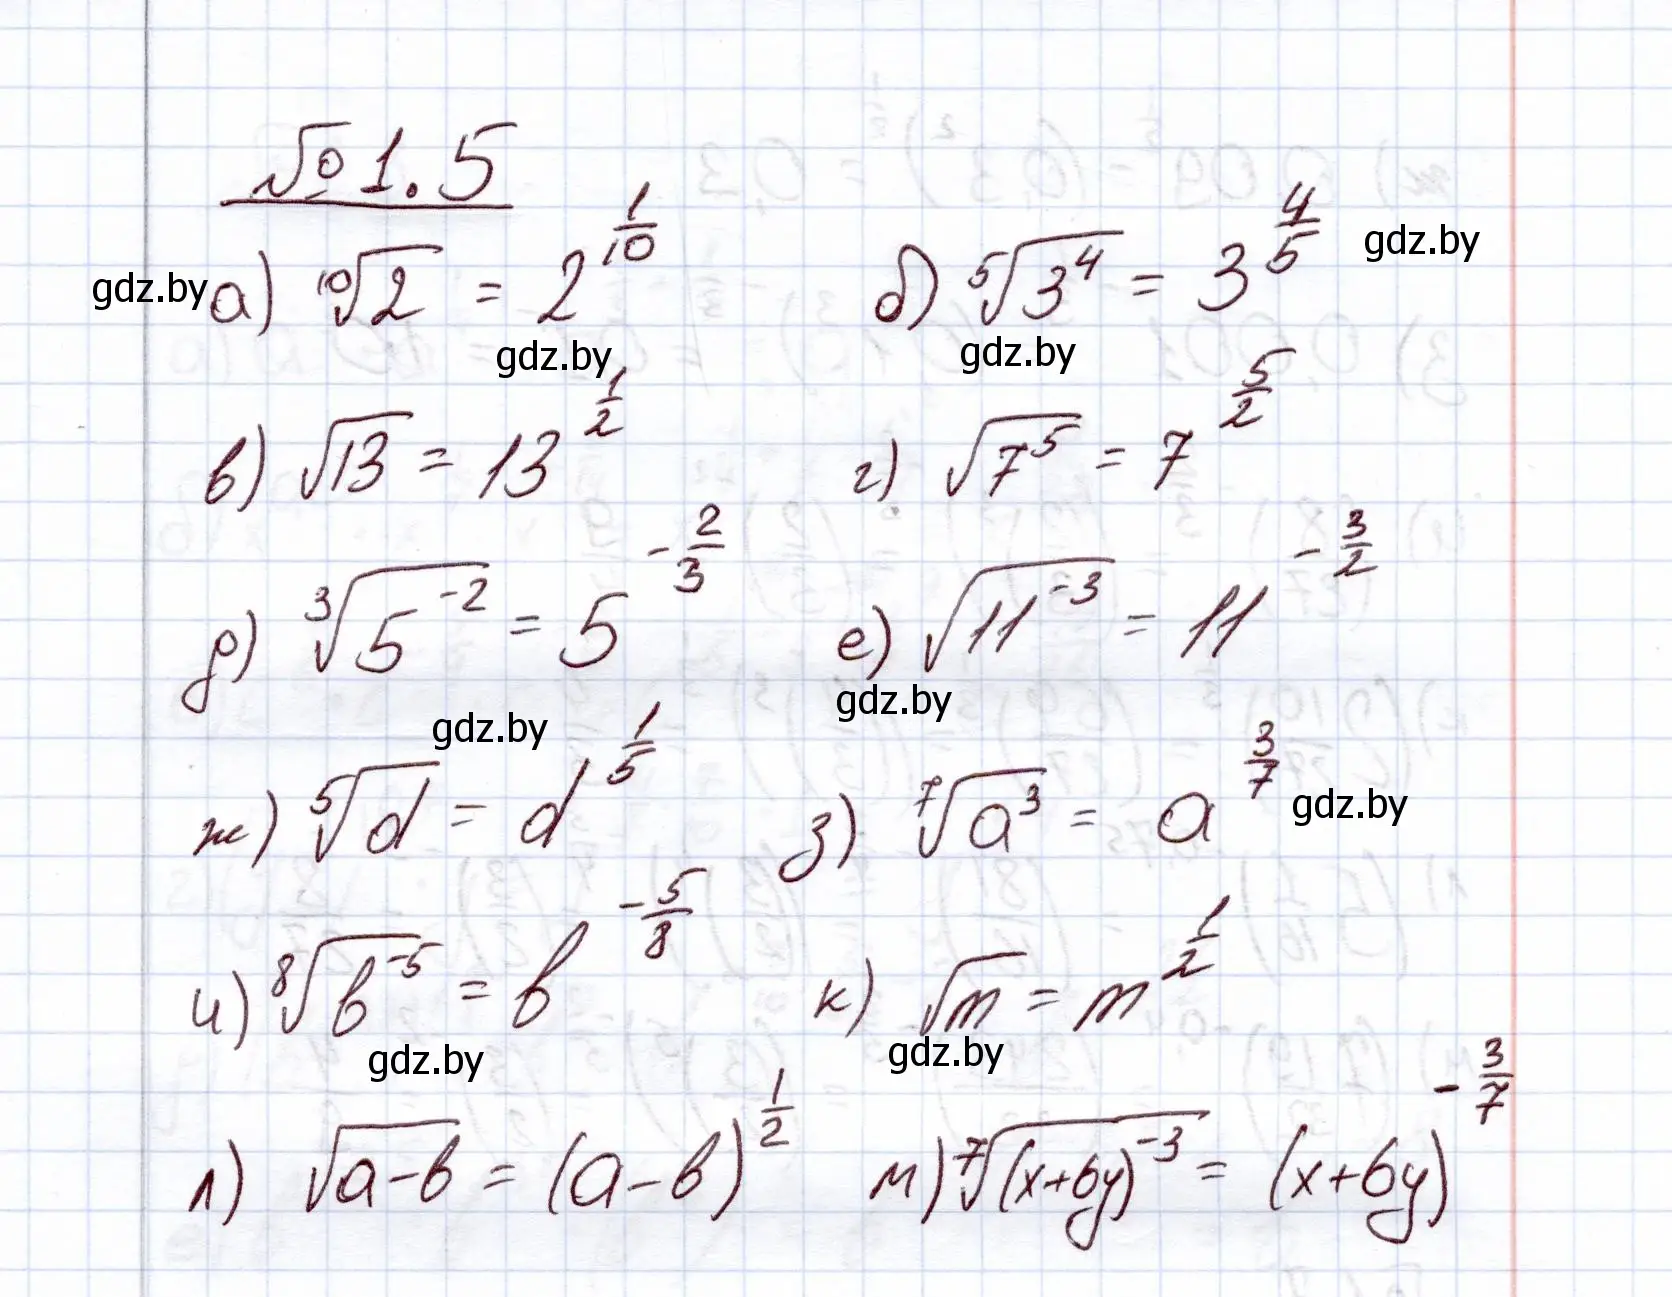 № 1.5
а) ¹⁰√2 = 2^(1/10) б) ⁵√(3⁴) = 3^(4/5) gdz.by
gdz.by gdz.by gdz.by
в) √13 = 13^(1/2) г) √(7⁵) = 7^(5/2)
д) ³√(5⁻²) = 5^(-2/3) е) √(11⁻³) = 11^(-3/2)
gdz.by gdz.by
ж) ⁵√d = d^(1/5) з) ⁷√(a³) = a^(3/7) gdz.by
и) ⁸√(b⁻⁵) = b^(-5/8) к) √m = m^(1/2)
gdz.by gdz.by
л) √(a-b) = (a-b)^(1/2) м) ⁷√((x+6y)⁻³) = (x+6y)^(-3/7)